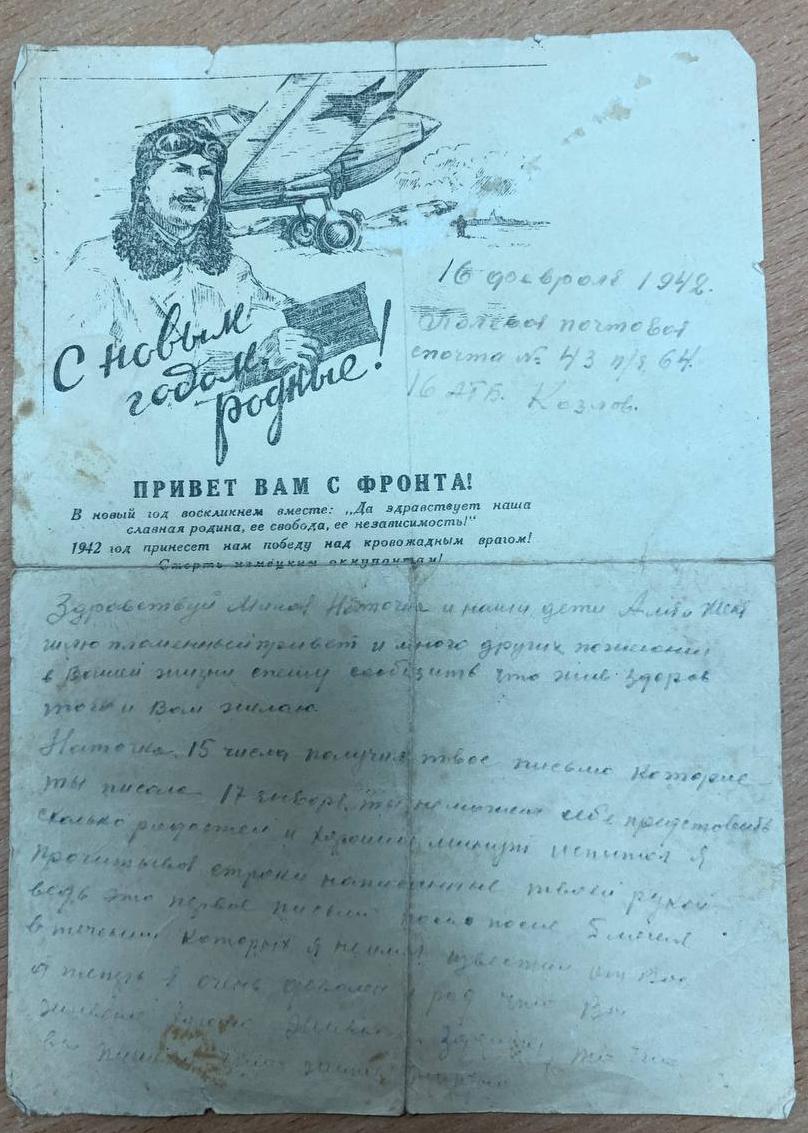 С новым
годом,
родные!
16 февраля 1942.
Полевая почтовая
почта № 43 п/я 64.
16 АТБ. Козлов.
ПРИВЕТ ВАМ С ФРОНТА!
В новый год воскликнем вместе: „Да здравствует наша
славная родина, ее свобода, ее независимость!"
1942 год принесет нам победу над кровожадным врагом!
Смерть немецким оккупантам!
Здравствуй Милая Наточка и наши дети
шлю пламенный привет и много других пожеланий
в Вашей жизни спешу сообщить что жив здоров
того и Вам желаю
Наточка 15 числа получил твое письмо которые
ты писала 17 января, ты не можеш себе представить
сколько радостей и хороших минут испытал я
прочитывая строки написанные твоей рукой
ведь это первое письмо после 5 месяцев
в течении которых я не имел известий от Вас
а теперь я очень доволен и рад что Вы